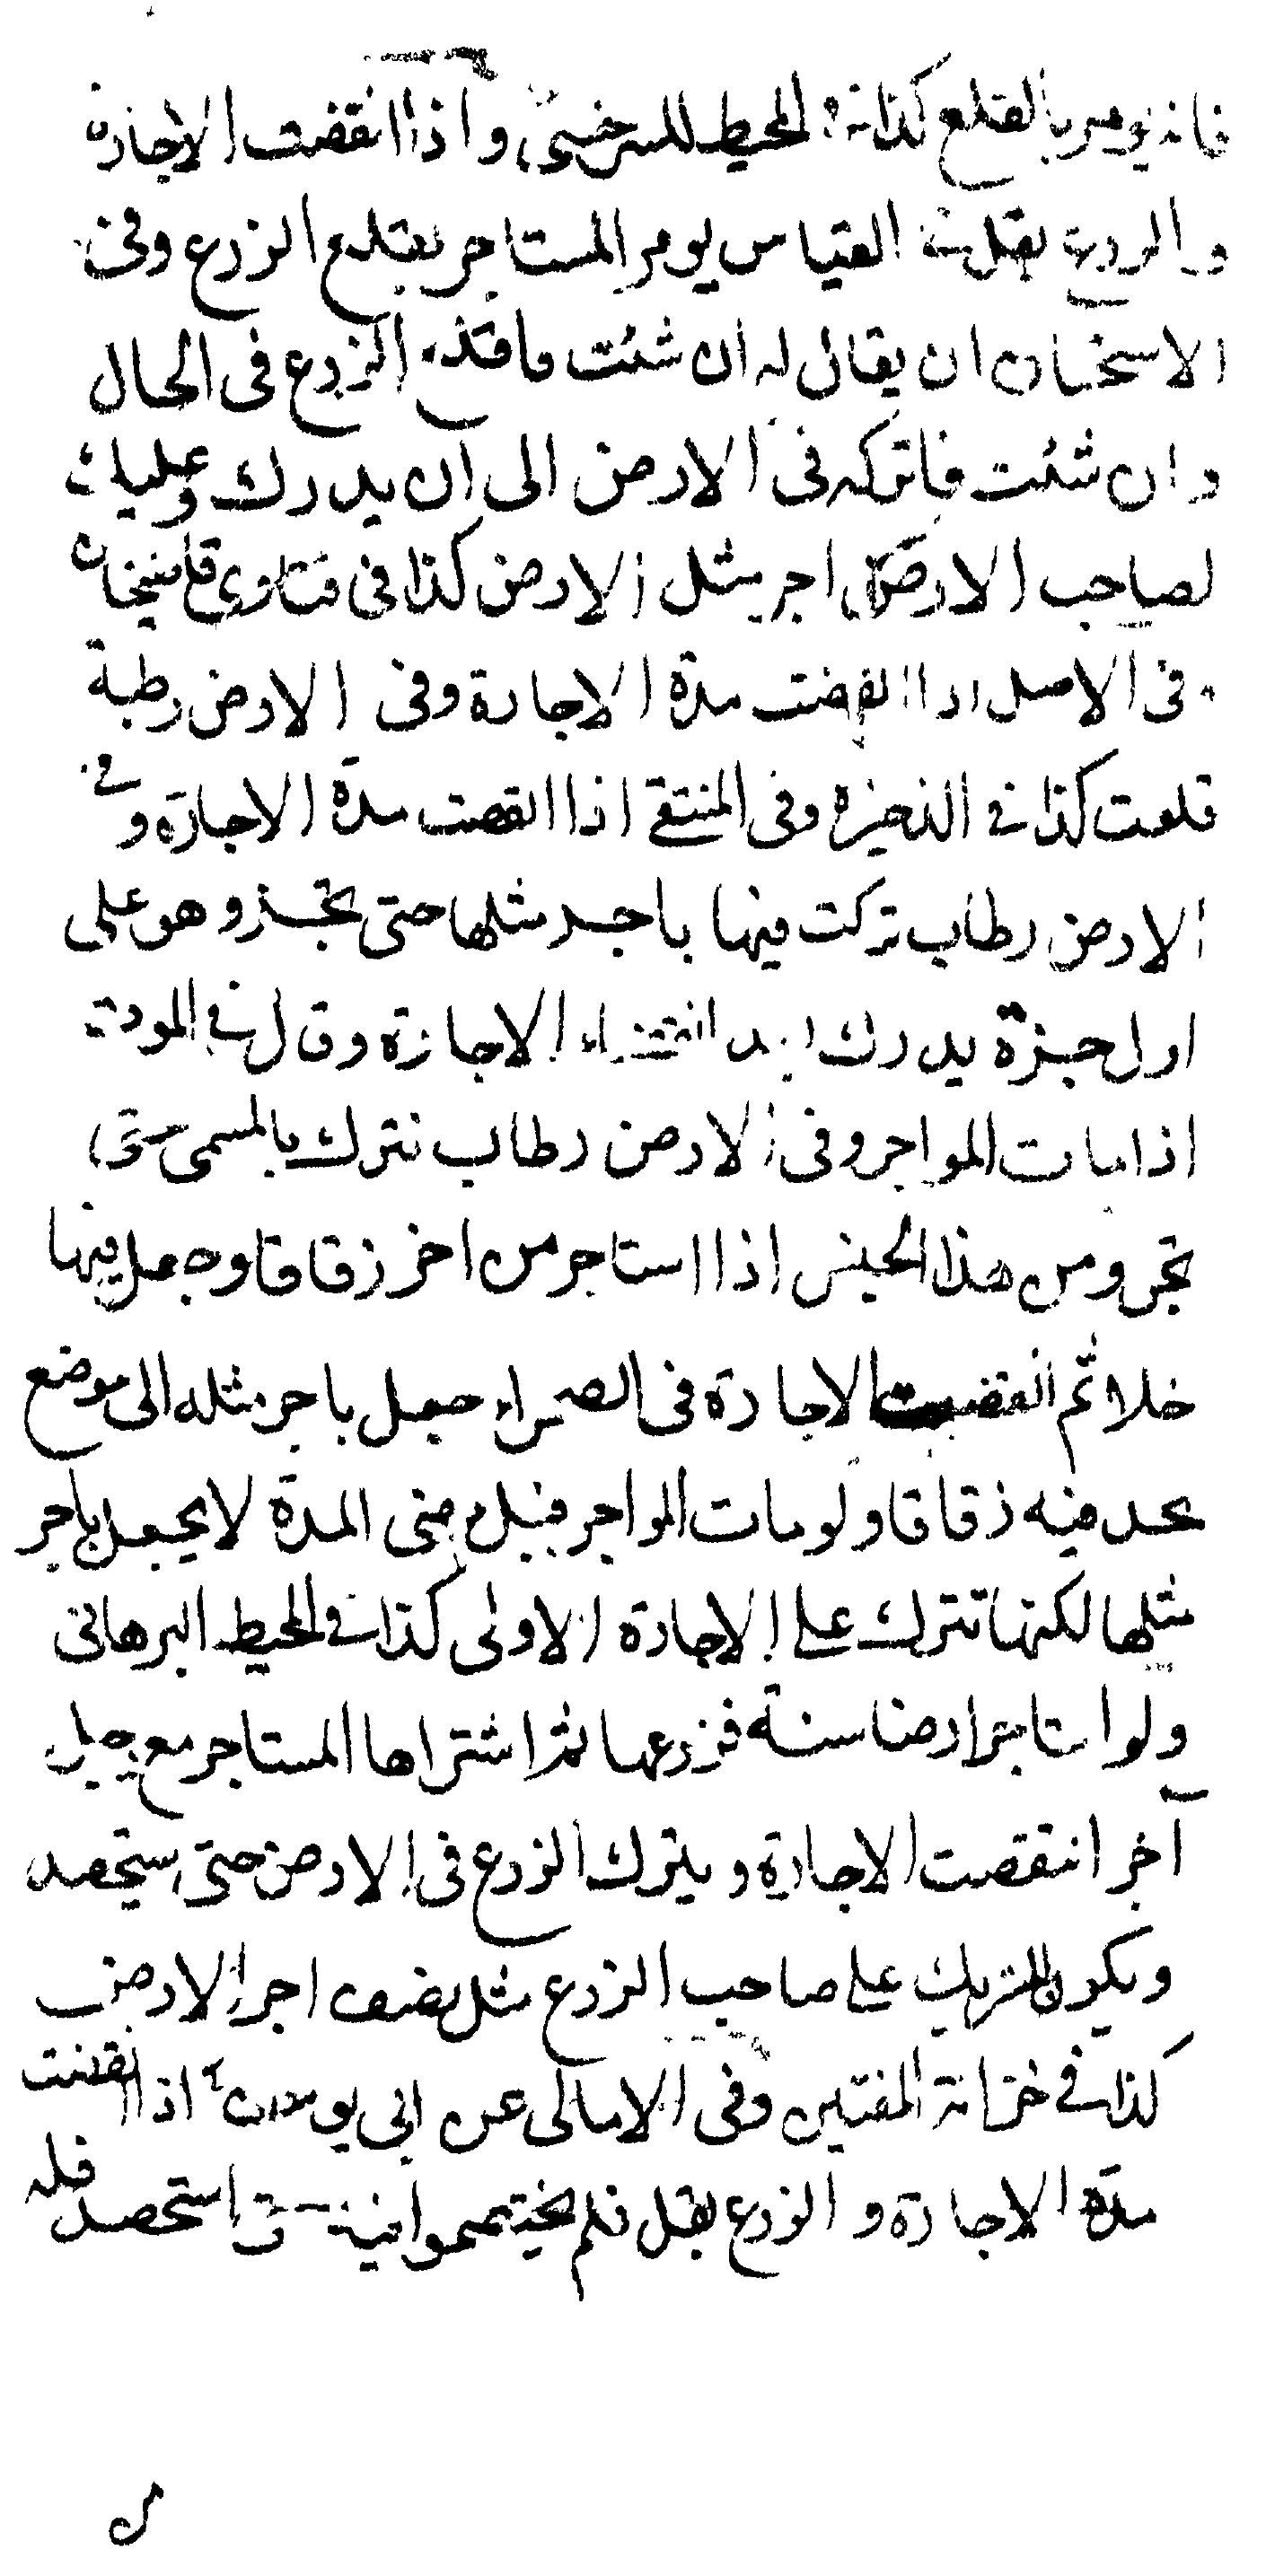 فانه يومر بالقلع كذا في المحيط للسرخسي واذا انقضت الاجارة
والزرع بقل في القياس يومر المستاجر بقلع الزرع وفي
الاستحسان ان يقال له ان شئت فاقلع الزرع في الحال
وان شئت فاتركه في الارض الى ان يدرك وعليك
لصاحب الارض اجر مثل الارض كذا في فتاوى قاضيخان
في الاصل اذا انقضت مدة الاجارة وفي الارض رطبة
قلعت كذا في الذخيرة وفي المنتقى اذا انقضت مدة الاجارة وفي
الارض رطاب تركت فيها باجر مثلها حتى تجز وهو على
اول جزة يدرك بعد انقضاء الاجارة وقال في
اذا مات المواجر وفي الارض رطاب تترك بالمسمى حتى
تجز ومن هذا الجنس اذا استاجر من اخر زقاقا وجعل فيها
خلا ثم انقضت الاجارة في الصحراء جعل باجر مثله الى موضع
يجد فيه زقاقا ولو مات المواجر قبل مضي المدة لا يجعل باجر
مثلها لكنها تترك على الاجارة الاولى كذا في المحيط البرهاني
ولو استاجر ارضا سنة فزرعها ثم اشتراها المستاجر مع رجل
آخر انتقضت الاجارة ويترك الزرع في الارض حتى يستحصد
ويكون للشريك على صاحب الزرع مثل نصف اجر الارض
كذا في خزانة المفتين وفي الامالي عن ابي يوسف اذا انقضت
مدة الاجارة والزرع بقل فلم يختصموا فيه حتى استحصد فله